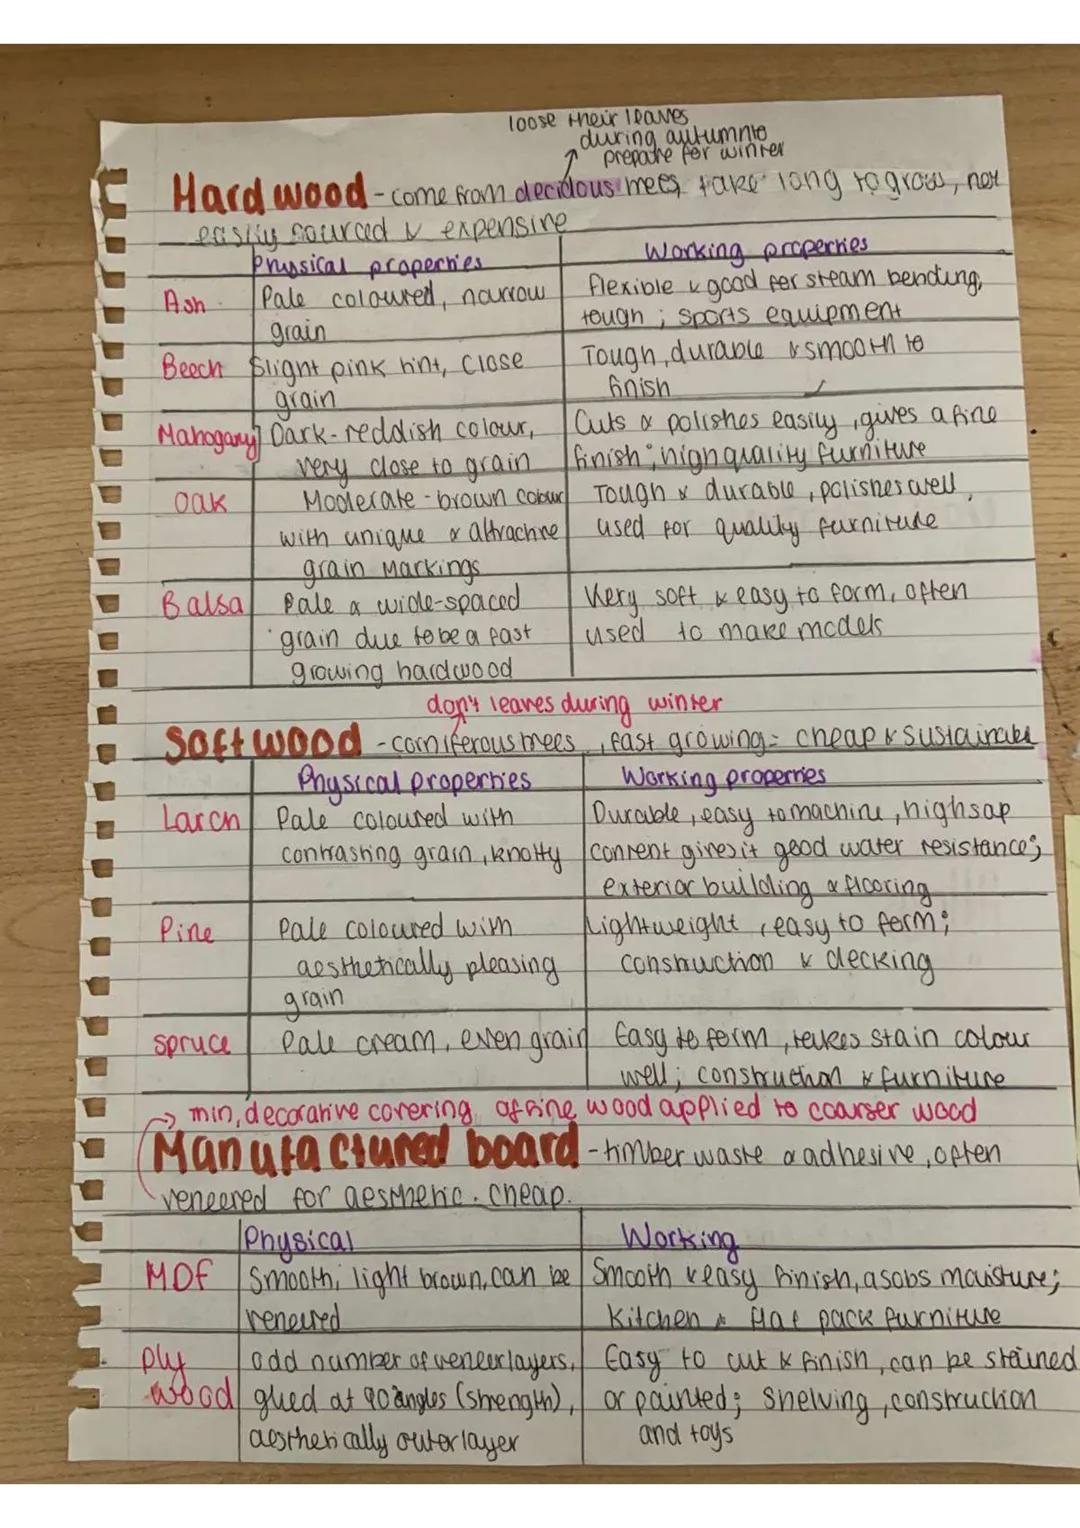 loose their leaves
during autumn to
prepare for winter
Hardwood - come from decidous trees, take long to grow, not
easily sourced & expensive
Physical properties
Working properties
Ash
Pale coloured, narrow
grain
flexible & good for steam bending,
tough ; sports equipment
Beech
Slight pink hint, close
grain
Tough, durable & smooth to
finish
Mahogany
Dark-reddish colour,
very close to grain
Cuts & polishes easily, gives a fine
finish ; high quality furniture
Oak
Moderate-brown colour
with unique & attractive
grain markings
Tough & durable, polishes well,
used for quality furniture
Balsa
Pale & wide-spaced
grain due to be a fast
growing hardwood
Very soft & easy to form, often
used to make models
don't leaves during winter
Softwood - corniferous trees, fast growing = cheap & sustainable
Physical properties
Working properties
Larch
Pale coloured with
contrasting grain, knotty
Durable, easy to machine, high sap
content gives it good water resistance;
exterior building & flooring
Pine
Pale coloured with
aesthetically pleasing
grain
Lightweight, easy to form;
construction & decking
Spruce
Pale cream, even grain
Easy to form, takes stain colour
well; construction & furniture
→ thin, decorative covering of fine wood applied to coarser wood
Manufactured board - timber waste & adhesive, often
veneered for aesthetic. cheap.
Physical
Working
MDF
Smooth, light brown, can be
veneured
Smooth & easy finish, asobs moisture;
Kitchen & flat pack furniture
Ply
wood
odd number of veneer layers,
glued at 90 angles (strength),
aesthetically outer layer
Easy to cut & finish, can be stained
or painted; shelving, construction
and toys